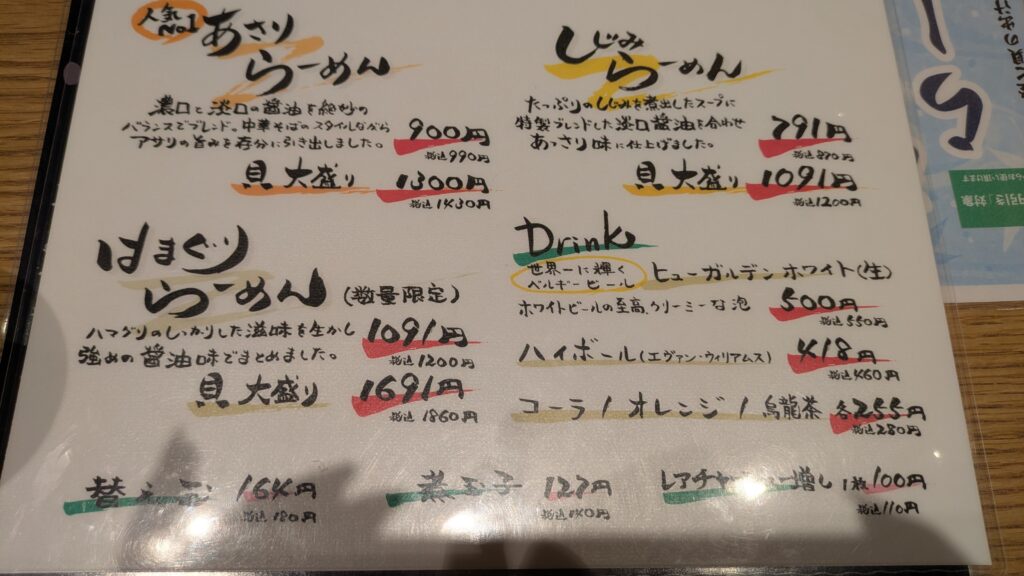 人気
No1
あさり
らーめん
濃口と淡口の醤油を絶妙の
バランスでブレンド。中華そばのスタイルながら
アサリの旨みを存分に引き出しました。
900円
税込990円
貝 大盛り 1300円
税込1430円
しじみ
らーめん
たっぷりのしじみを煮出したスープに
特製ブレンドした淡口醤油を合わせ
あっさり味に仕上げました。
791円
税込870円
貝 大盛り 1091円
税込1200円
はまぐり
らーめん (数量限定)
ハマグリのしっかりした滋味を生かし
強めの醤油味でまとめました。
1091円
税込1200円
貝 大盛り 1691円
税込1860円
Drink
世界一に輝く
ベルギービール
ヒューガルデンホワイト(生)
ホワイトビールの至高、クリーミーな泡
500円
税込550円
ハイボール(エヴァン・ウィリアムス) 418円
税込460円
コーラ / オレンジ / 烏龍茶 各255円
税込280円
替え玉 164円
税込180円
煮玉子 127円
税込140円
レアチャーシュー増し 1枚100円
税込110円
円引き」対象